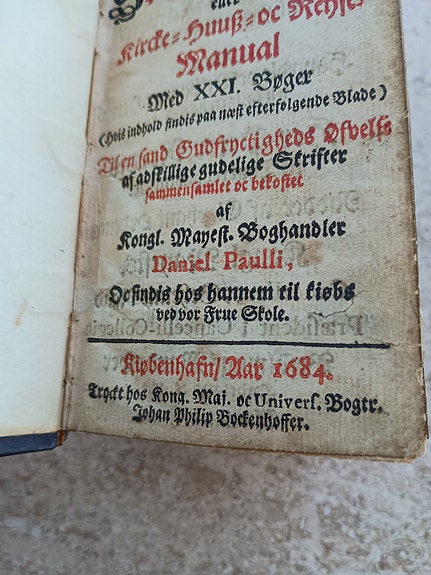 eller
Kircke-Huuß-oc Reyse
Manual
Med XXI. Bøger
(Hvis indhold findis paa næst efterfølgende Blade)
Til en sand Gudfryctigheds Øfvelse
af adskillige gudelige Skrifter
sammensamlet oc bekostet
af
Kongl. Mayest. Boghandler
Daniel Paulli,
Oc findis hos hannem til kiøbs
ved vor Frue Skole.
Kiøbenhafn/ Aar 1684.
Tryckt hos Kong. Maj. oc Univers. Bogtr.
Johan Philip Bockenhoffer.